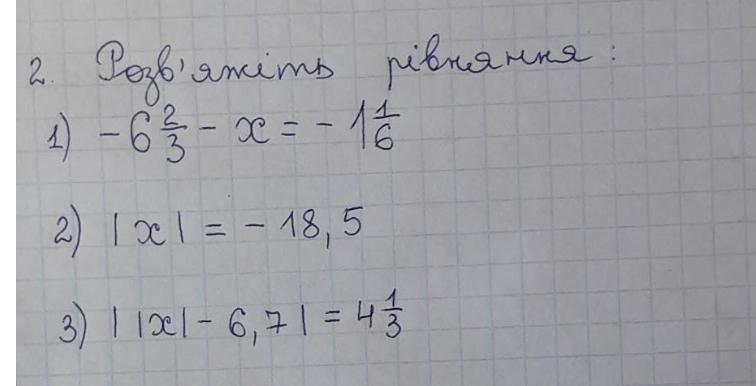 2. Розв'яжіть рівняння:
1) -6 2/3 - x = -1 1/6
2) |x| = -18,5
3) ||x| - 6,7| = 4 1/3